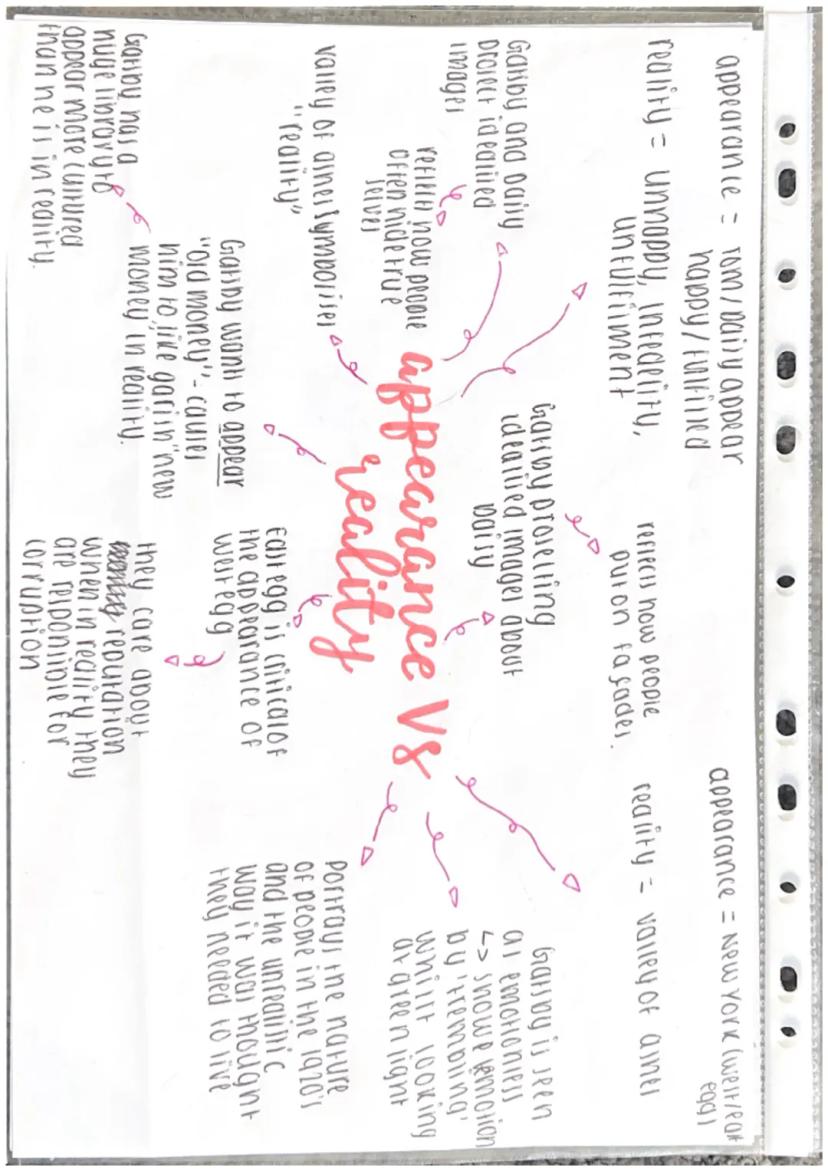 appearance = Tom/Daisy appear
happy/fulfilled
reality = unhappy, infedelity,
unfulfilment
appearance = New York (west/east
egg)
reality = valley of ashes
Gatsby and Daisy
project idealised
images
reflects how people
often hide true
selves
Gatsby projecting
idealised images about
Daisy
reflects how people
put on façades.
Gatsby is seen
as emotionless
↳ shows emotion
by 'trembling'
whilst looking
at green light
valley of ashes symbolises
"reality"
appearance vs
reality
Portrays the nature
of people in the 1920's
and the unrealistic
way it was thought
they needed to live
Gatsby wants to appear
"old money" - causes
him to live garish "new
money" in reality.
East egg is critical of
the appearance of
west egg
Gatsby has a
huge library to
appear more cultured
than he is in reality.
they care about
reputation
when in reality they
are responsible for
corruption